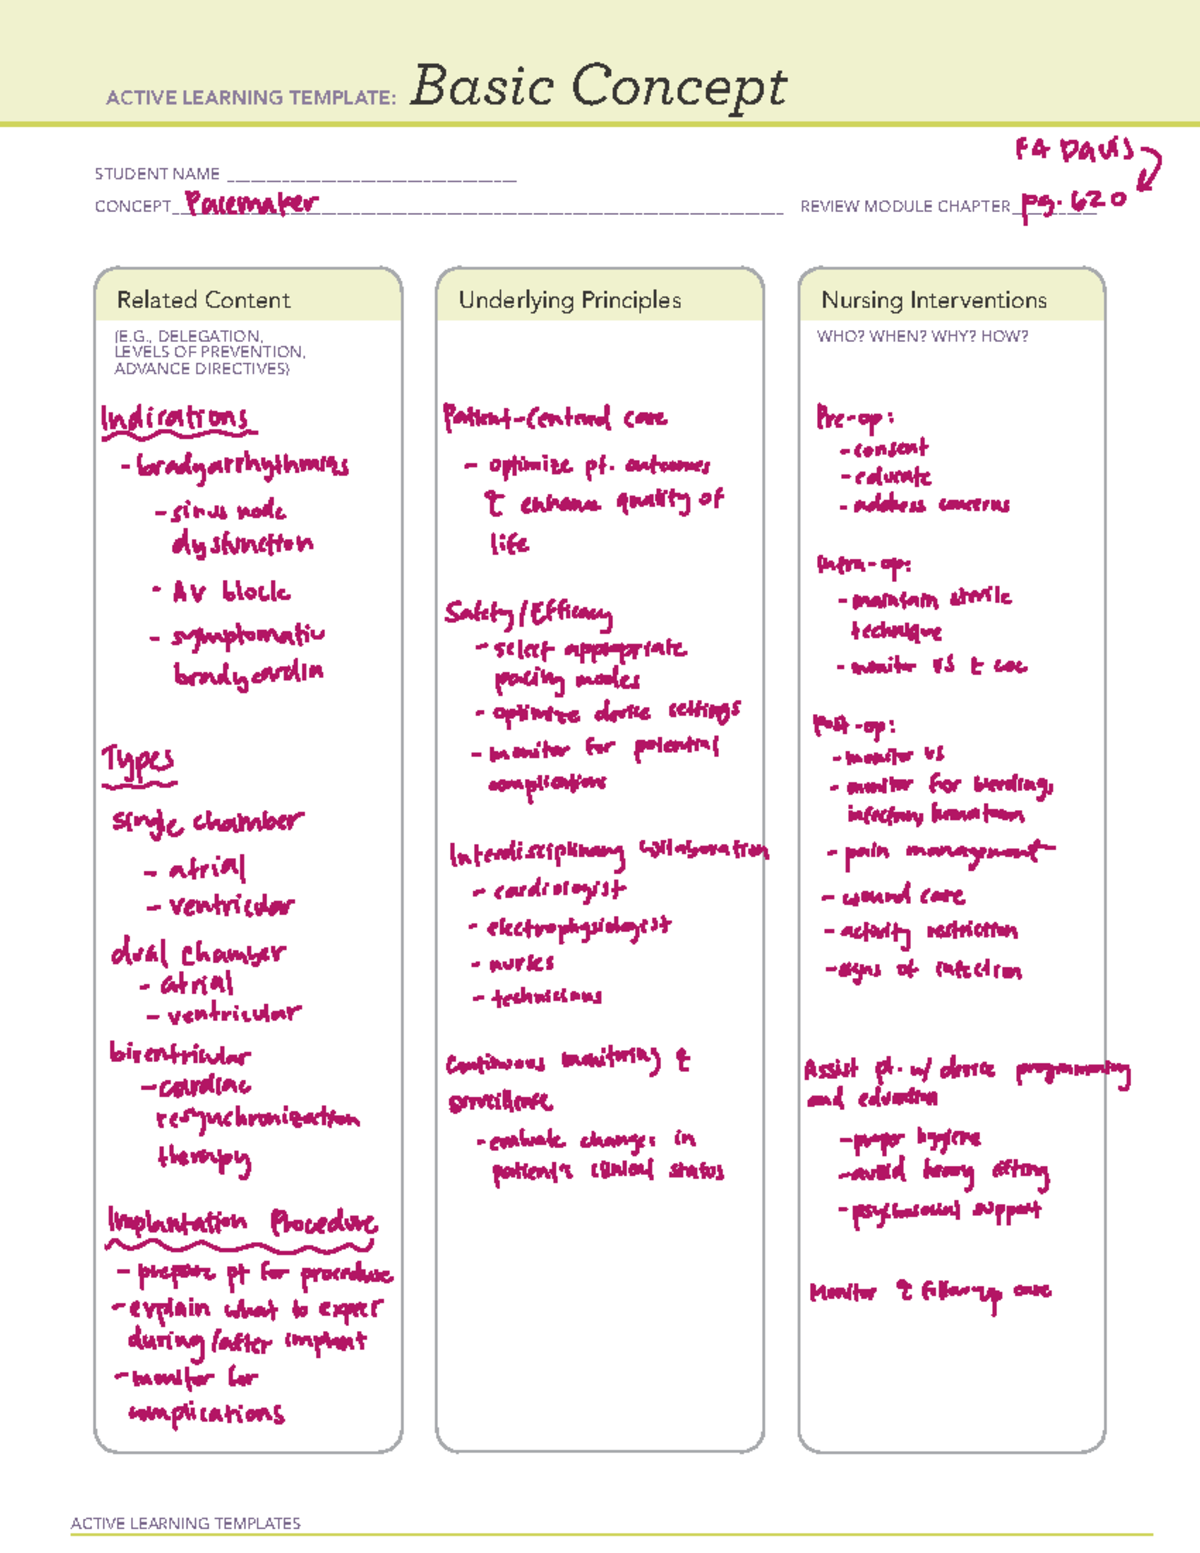 ACTIVE LEARNING TEMPLATE: Basic Concept
FA Davis
STUDENT NAME
CONCEPT Pacemaker
REVIEW MODULE CHAPTER pg. 620
Related Content
(E.G., DELEGATION,
LEVELS OF PREVENTION,
ADVANCE DIRECTIVES)
Indications
- bradyarrhythmias
- sinus node
dysfunction
- AV block
- symptomatic
bradycardia
Types
single chamber
- atrial
- ventricular
dual chamber
- atrial
- ventricular
biventricular
- cardiac
resynchronization
therapy
Implantation Procedure
- prepare pt for procedure
- explain what to expect
during/after implant
- monitor for
complications
Underlying Principles
Patient-Centered care
- optimize pt. outcomes
& enhance quality of
life
Safety/Efficacy
- select appropriate
pacing modes
- optimize device settings
- monitor for potential
complications
Interdisciplinary collaboration
- cardiologist
- electrophysiologist
- nurses
- technicians
Continuous monitoring &
surveillance
- evaluate changes in
patient's clinical status
Nursing Interventions
WHO? WHEN? WHY? HOW?
Pre-op:
- consent
- educate
- address concerns
Intra-op:
- maintain sterile
technique
- monitor VS & LOC
Post-op:
- monitor VS
- monitor for bleeding,
infection, hematoma
- pain management
- wound care
- activity restriction
- signs of infection
Assist pt. w/ device programming
and education
- proper hygiene
- avoid heavy lifting
- psychosocial support
Monitor & follow-up care
ACTIVE LEARNING TEMPLATES